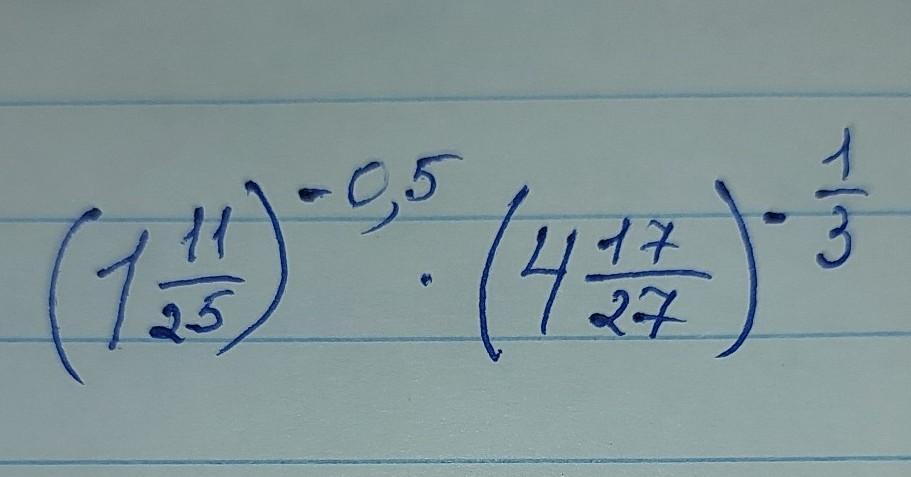 (1 11/25)^-0,5 · (4 17/27)^-1/3